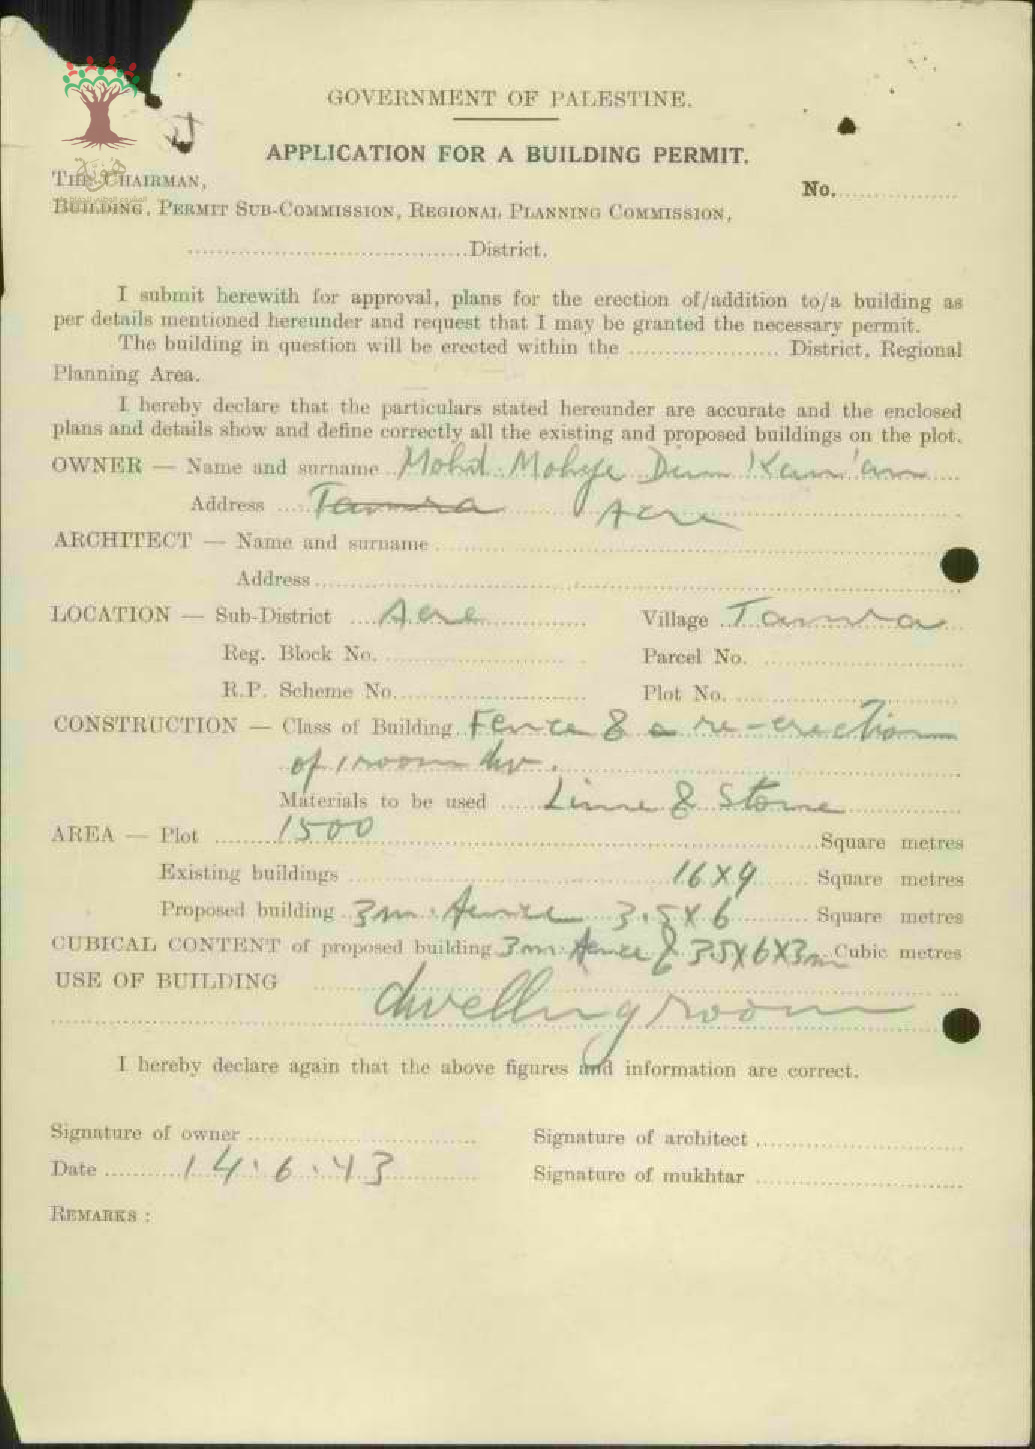 GOVERNMENT OF PALESTINE.
APPLICATION FOR A BUILDING PERMIT.
هوية
THE CHAIRMAN,
No.
BUILDING, PERMIT SUB-COMMISSION, REGIONAL PLANNING COMMISSION,
District.
I submit herewith for approval, plans for the erection of/addition to/a building as
per details mentioned hereunder and request that I may be granted the necessary permit.
The building in question will be erected within the .................... District, Regional
Planning Area.
I hereby declare that the particulars stated hereunder are accurate and the enclosed
plans and details show and define correctly all the existing and proposed buildings on the plot.
OWNER — Name and surname Mohd. Mohye Din Kan'an
Address Tamra Acre
ARCHITECT — Name and surname
Address
LOCATION — Sub-District Acre Village Tamra
Reg. Block No. Parcel No.
R.P. Scheme No. Plot No.
CONSTRUCTION — Class of Building Fence & a re-erection
of 1 room
Materials to be used Lime & Stone
AREA — Plot 1500 Square metres
Existing buildings 16X9 Square metres
Proposed building 3m. fence 3.5X6 Square metres
CUBICAL CONTENT of proposed building 3m. fence & 3.5X6X3m Cubic metres
USE OF BUILDING
dwelling room
I hereby declare again that the above figures and information are correct.
Signature of owner Signature of architect
Date 14.6.43 Signature of mukhtar
REMARKS :